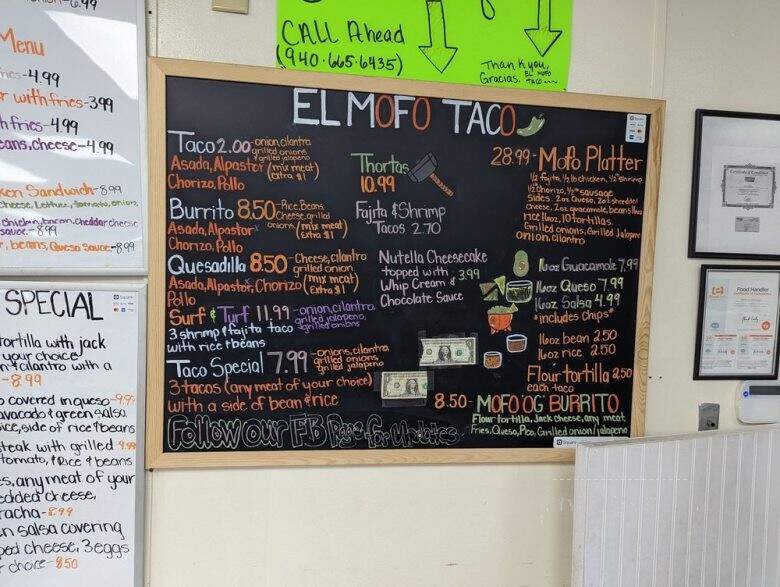 CALL Ahead
(940·665·6435)
Thank you,
Gracias. EL MOFO
TACO
Menu
-4.99
r with fries-399
h fries-4.99
eans, cheese-4.99
Sandwich-8.99
cheese, Lettuce, tomato, onion,
chicken, bacon, cheddar cheese
sauce.-8.99
, beans, Queso Sauce-8.99
SPECIAL
tortilla with jack
your choice
cilantro with a
-8.99
o covered in queso-9.9
avacado & green salsa
ice, side of rice & beans
steak with grilled 9.99
tomato, & Rice & beans
s, any meat of your
edded cheese,
racha-8.99
n salsa covering
ped cheese, 3 eggs
choice-850
EL MOFO TACO
Taco 2.00-onion, cilantro
grilled onions
grilled jalapeno
Asada, Alpastor (mix meat)
Chorizo, Pollo Extra $1
Burrito 8.50-Rice, Beans,
Cheese, grilled
onions
Asada, Alpastor (mix meat)
Chorizo, Pollo Extra $1
Quesadilla 8.50-Cheese, cilantro
grilled onion
Asada, Alpastor, Chorizo (mix meat)
Pollo Extra $1
Surf & Turf 11.99-onion, cilantro,
grilled jalapeno,
grilled onions
3 shrimp & fajita taco
with rice & beans
Taco Special 7.99-onions, cilantro
grilled onions
grilled jalapeno
3 tacos (any meat of your choice)
with a side of bean & rice
Follow our FB Page for Updates
Thortas
10.99
Fajita & Shrimp
Tacos 2.70
Nutella Cheesecake
topped with 3.99
Whip Cream &
Chocolate Sauce
28.99-Mofo Platter
1/2 fajita, 1/2 lb chicken, 1/2 shrimp
1/2 chorizo, 1/2 sausage
sides: 2oz Queso, 2oz shredded
cheese, 2oz guacamole, beans 16oz
rice 16oz, 10 tortillas.
Grilled onions, Grilled Jalapeno
onion, cilantro
16oz Guacamole 7.99
16oz Queso 7.99
16oz Salsa 4.99
*includes chips*
16oz bean 2.50
16oz rice 2.50
Flour tortilla 2.50
each taco
8.50-MOFO "OG" BURRITO
Flour tortilla, Jack cheese, any meat
Fries, Queso, Pico, Grilled onion/jalapeno
Food Handler